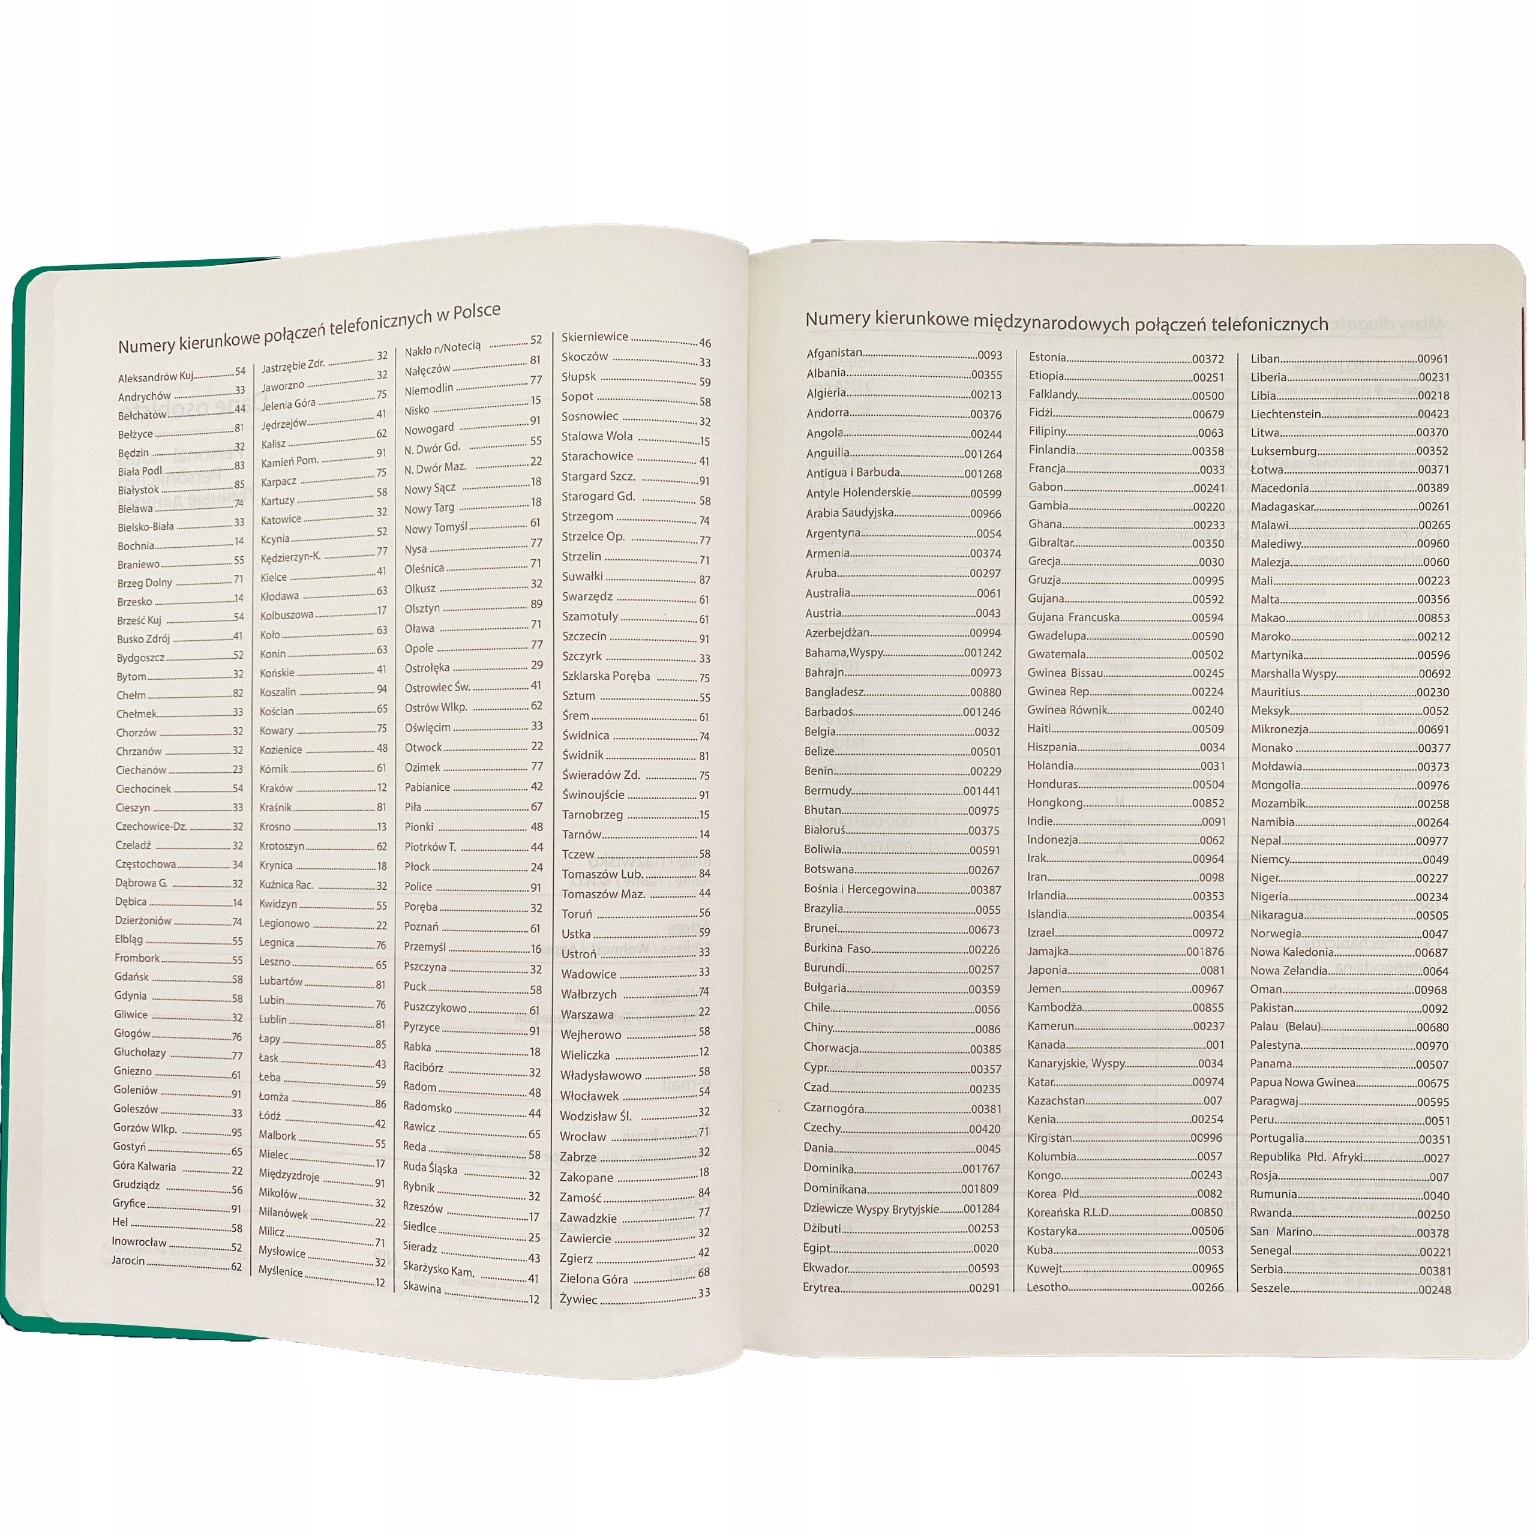 Numery kierunkowe połączeń telefonicznych w Polsce
Aleksandrów Kuj. 54
Andrychów 33
Bełchatów 44
Bełżyce 81
Będzin 32
Biała Podl 83
Białystok 85
Bielawa 74
Bielsko-Biała 33
Bochnia 14
Braniewo 55
Brzeg Dolny 71
Brzesko 14
Brześć Kuj 54
Busko Zdrój 41
Bydgoszcz 52
Bytom 32
Chełm 82
Chełmek 33
Chorzów 32
Chrzanów 32
Ciechanów 23
Ciechocinek 54
Cieszyn 33
Czechowice-Dz. 32
Czeladź 32
Częstochowa 34
Dąbrowa G. 32
Dębica 14
Dzierżoniów 74
Elbląg 55
Frombork 55
Gdańsk 58
Gdynia 58
Gliwice 32
Głogów 76
Głuchołazy 77
Gniezno 61
Goleniów 91
Goleszów 33
Gorzów Wlkp. 95
Gostyń 65
Góra Kalwaria 22
Grudziądz 56
Gryfice 91
Hel 58
Inowrocław 52
Jarocin 62
Jastrzębie Zdr. 32
Jaworzno 32
Jelenia Góra 75
Jędrzejów 41
Kalisz 62
Kamień Pom. 91
Karpacz 75
Kartuzy 58
Katowice 32
Kcynia 52
Kędzierzyn-K. 77
Kielce 41
Kłodawa 63
Kolbuszowa 17
Koło 63
Konin 63
Końskie 41
Koszalin 94
Kościan 65
Kowary 75
Kozienice 48
Kórnik 61
Kraków 12
Kraśnik 81
Krosno 13
Krotoszyn 62
Krynica 18
Kuźnica Rac. 32
Kwidzyn 55
Legionowo 22
Legnica 76
Leszno 65
Lubartów 81
Lubin 76
Lublin 81
Łapy 85
Łask 43
Łeba 59
Łomża 86
Łódź 42
Malbork 55
Mielec 17
Międzyzdroje 91
Mikołów 32
Milanówek 22
Milicz 71
Mysłowice 32
Myślenice 12
Nakło n/Notecią 52
Nałęczów 81
Niemodlin 77
Nisko 15
Nowogard 91
N. Dwór Gd. 55
N. Dwór Maz. 22
Nowy Sącz 18
Nowy Targ 18
Nowy Tomyśl 61
Nysa 77
Oleśnica 71
Olkusz 32
Olsztyn 89
Oława 71
Opole 77
Ostrołęka 29
Ostrowiec Św. 41
Ostrów Wlkp. 62
Oświęcim 33
Otwock 22
Ozimek 77
Pabianice 42
Piła 67
Pionki 48
Piotrków T. 44
Płock 24
Police 91
Poręba 32
Poznań 61
Przemyśl 16
Pszczyna 32
Puck 58
Puszczykowo 61
Pyrzyce 91
Rabka 18
Racibórz 32
Radom 48
Radomsko 44
Rawicz 65
Reda 58
Ruda Śląska 32
Rybnik 32
Rzeszów 17
Siedlce 25
Sieradz 43
Skarżysko Kam. 41
Skawina 12
Skierniewice 46
Skoczów 33
Słupsk 59
Sopot 58
Sosnowiec 32
Stalowa Wola 15
Starachowice 41
Stargard Szcz. 91
Starogard Gd. 58
Strzegom 74
Strzelce Op. 77
Strzelin 71
Suwałki 87
Swarzędz 61
Szamotuły 61
Szczecin 91
Szczyrk 33
Szklarska Poręba 75
Sztum 55
Śrem 61
Świdnica 74
Świdnik 81
Świeradów Zd. 75
Świnoujście 91
Tarnobrzeg 15
Tarnów 14
Tczew 58
Tomaszów Lub. 84
Tomaszów Maz. 44
Toruń 56
Ustka 59
Ustroń 33
Wadowice 33
Wałbrzych 74
Warszawa 22
Wejherowo 58
Wieliczka 12
Władysławowo 58
Włocławek 54
Wodzisław Śl. 32
Wrocław 71
Zabrze 32
Zakopane 18
Zamość 84
Zawadzkie 77
Zawiercie 32
Zgierz 42
Zielona Góra 68
Żywiec 33
Numery kierunkowe międzynarodowych połączeń telefonicznych
Afganistan 0093
Albania 00355
Algieria 00213
Andorra 00376
Angola 00244
Anguilla 001264
Antigua i Barbuda 001268
Antyle Holenderskie 00599
Arabia Saudyjska 00966
Argentyna 0054
Armenia 00374
Aruba 00297
Australia 0061
Austria 0043
Azerbejdżan 00994
Bahama,Wyspy 001242
Bahrajn 00973
Bangladesz 00880
Barbados 001246
Belgia 0032
Belize 00501
Benin 00229
Bermudy 001441
Bhutan 00975
Białoruś 00375
Boliwia 00591
Botswana 00267
Bośnia i Hercegowina 00387
Brazylia 0055
Brunei 00673
Burkina Faso 00226
Burundi 00257
Bułgaria 00359
Chile 0056
Chiny 0086
Chorwacja 00385
Cypr 00357
Czad 00235
Czarnogóra 00381
Czechy 00420
Dania 0045
Dominika 001767
Dominikana 001809
Dziewicze Wyspy Brytyjskie 001284
Dżibuti 00253
Egipt 0020
Ekwador 00593
Erytrea 00291
Estonia 00372
Etiopia 00251
Falklandy 00500
Fidżi 00679
Filipiny 0063
Finlandia 00358
Francja 0033
Gabon 00241
Gambia 00220
Ghana 00233
Gibraltar 00350
Grecja 0030
Gruzja 00995
Gujana 00592
Gujana Francuska 00594
Gwadelupa 00590
Gwatemala 00502
Gwinea Bissau 00245
Gwinea Rep. 00224
Gwinea Równik. 00240
Haiti 00509
Hiszpania 0034
Holandia 0031
Honduras 00504
Hongkong 00852
Indie 0091
Indonezja 0062
Irak 00964
Iran 0098
Irlandia 00353
Islandia 00354
Izrael 00972
Jamajka 001876
Japonia 0081
Jemen 00967
Kambodża 00855
Kamerun 00237
Kanada 001
Kanaryjskie, Wyspy 0034
Katar 00974
Kazachstan 007
Kenia 00254
Kirgistan 00996
Kolumbia 0057
Kongo 00243
Korea Płd 0082
Koreańska R.L.D. 00850
Kostaryka 00506
Kuba 0053
Kuwejt 00965
Lesotho 00266
Liban 00961
Liberia 00231
Libia 00218
Liechtenstein 00423
Litwa 00370
Luksemburg 00352
Łotwa 00371
Macedonia 00389
Madagaskar 00261
Malawi 00265
Malediwy 00960
Malezja 0060
Mali 00223
Malta 00356
Makao 00853
Maroko 00212
Martynika 00596
Marshalla Wyspy 00692
Mauritius 00230
Meksyk 0052
Mikronezja 00691
Monako 00377
Mołdawia 00373
Mongolia 00976
Mozambik 00258
Namibia 00264
Nepal 00977
Niemcy 0049
Niger 00227
Nigeria 00234
Nikaragua 00505
Norwegia 0047
Nowa Kaledonia 00687
Nowa Zelandia 0064
Oman 00968
Pakistan 0092
Palau (Belau) 00680
Palestyna 00970
Panama 00507
Papua Nowa Gwinea 00675
Paragwaj 00595
Peru 0051
Portugalia 00351
Republika Płd. Afryki 0027
Rosja 007
Rumunia 0040
Rwanda 00250
San Marino 00378
Senegal 00221
Serbia 00381
Seszele 00248